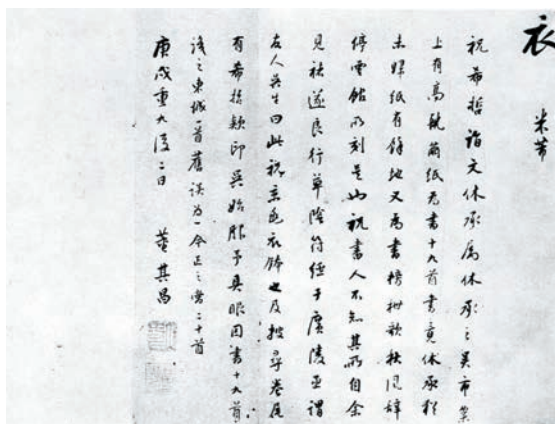 衣
米芾
祝希哲詣文休承屬休承之吳市案
上有高麗繭紙為書十九首書竟休承猶
未歸紙有餘地又為書榜枻歌秋風辭
停雲館所刻是也祝書人不知其所自余
見褚遂良行草陰符經于廣陵亟謂
友人吳生曰此祝京兆衣鉢也及披尋卷尾
有希哲款印吳始服予具眼因書十九首
識之東城一首舊誤為一今正之當二十首
庚戌重九後二日 董其昌